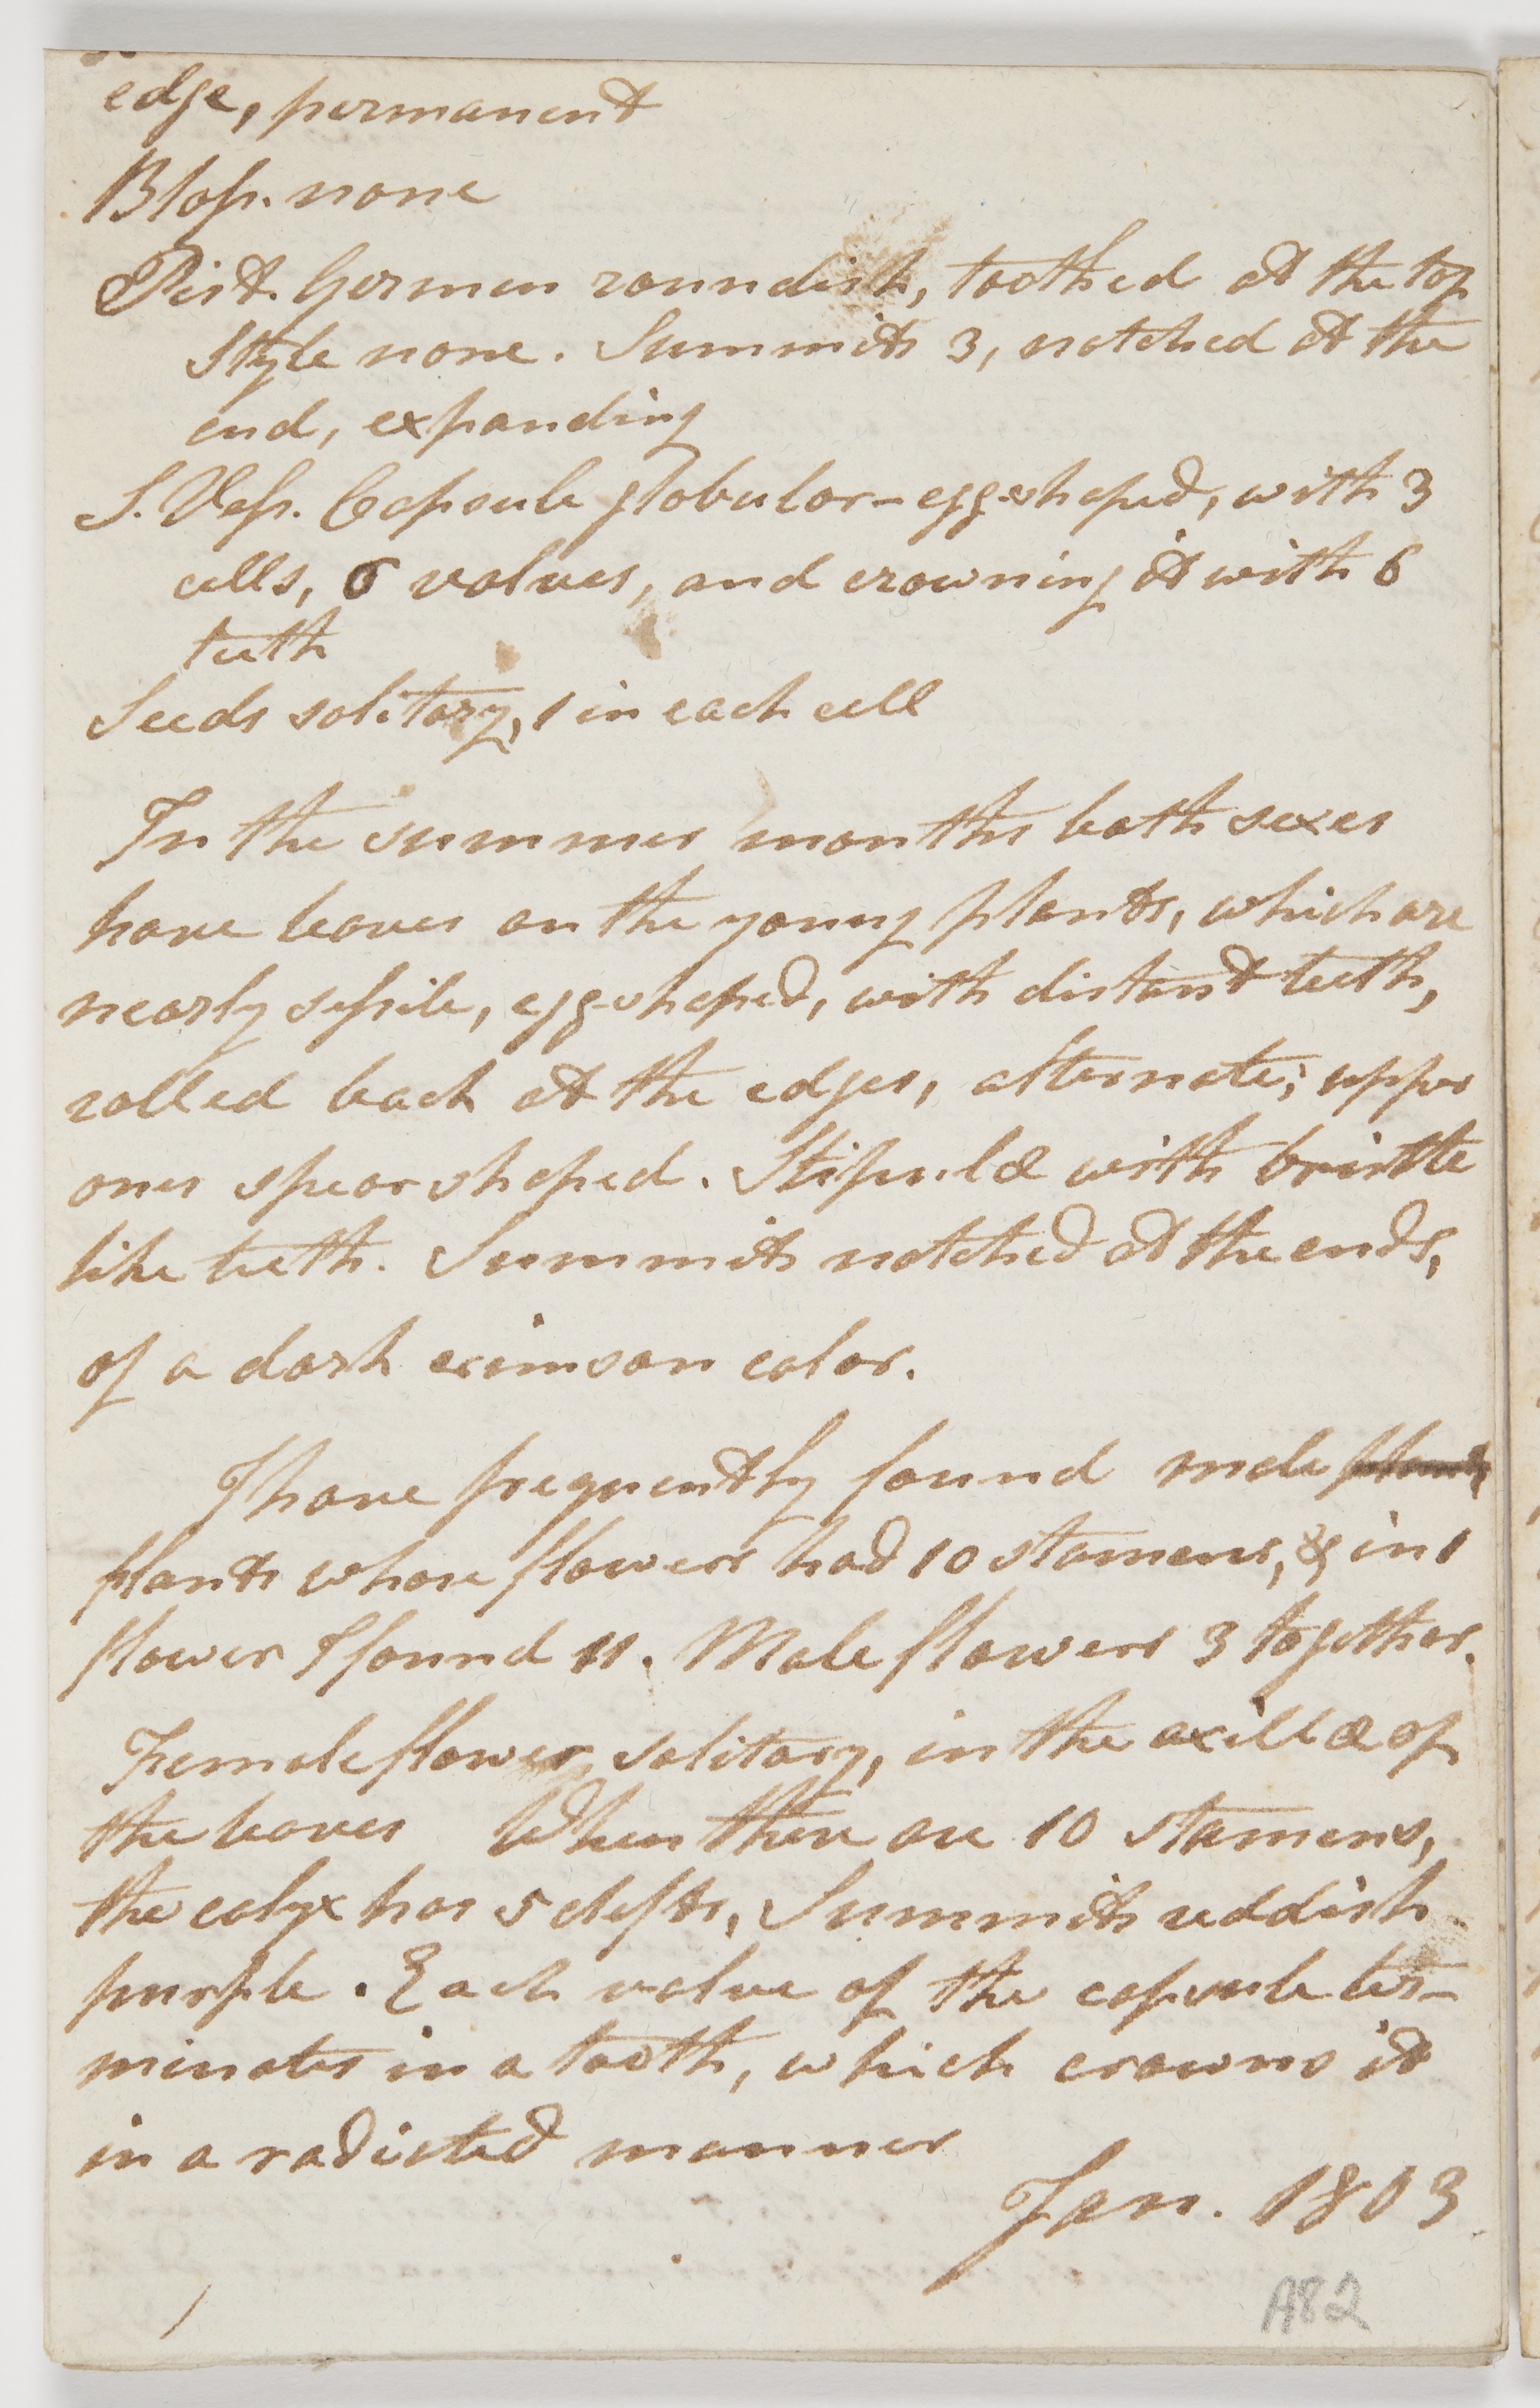 edge, permanent
Bloſs. none
Pist. Germen roundish, toothed at the top
Style none. Summits 3, notched at the
end, expanding
S. Veſs. Capsule globular-egg-shaped, with 3
cells, 6 valves, and crowning it with 6
teeth
Seeds solitary, 1 in each cell
In the summer months both sexes
have leaves on the young plants, which are
nearly seſsile, egg-shaped, with distant teeth,
rolled back at the edges, alternate; upper
ones spear shaped. Stipulæ with bristle
like teeth. Summits notched at the ends,
of a dark crimson color.
I have frequently found male plants
plants whose flowers had 10 stamens, & in 1
flower I found 11. Male flowers 3 together.
Female flower solitary, in the axillæ of
the leaves When there are 10 stamens,
the calyx has 5 clefts, Summits reddish
purple. Each valve of the capsule ter-
minates in a tooth, which crowns it
in a radiated manner
Jan. 1803
A82